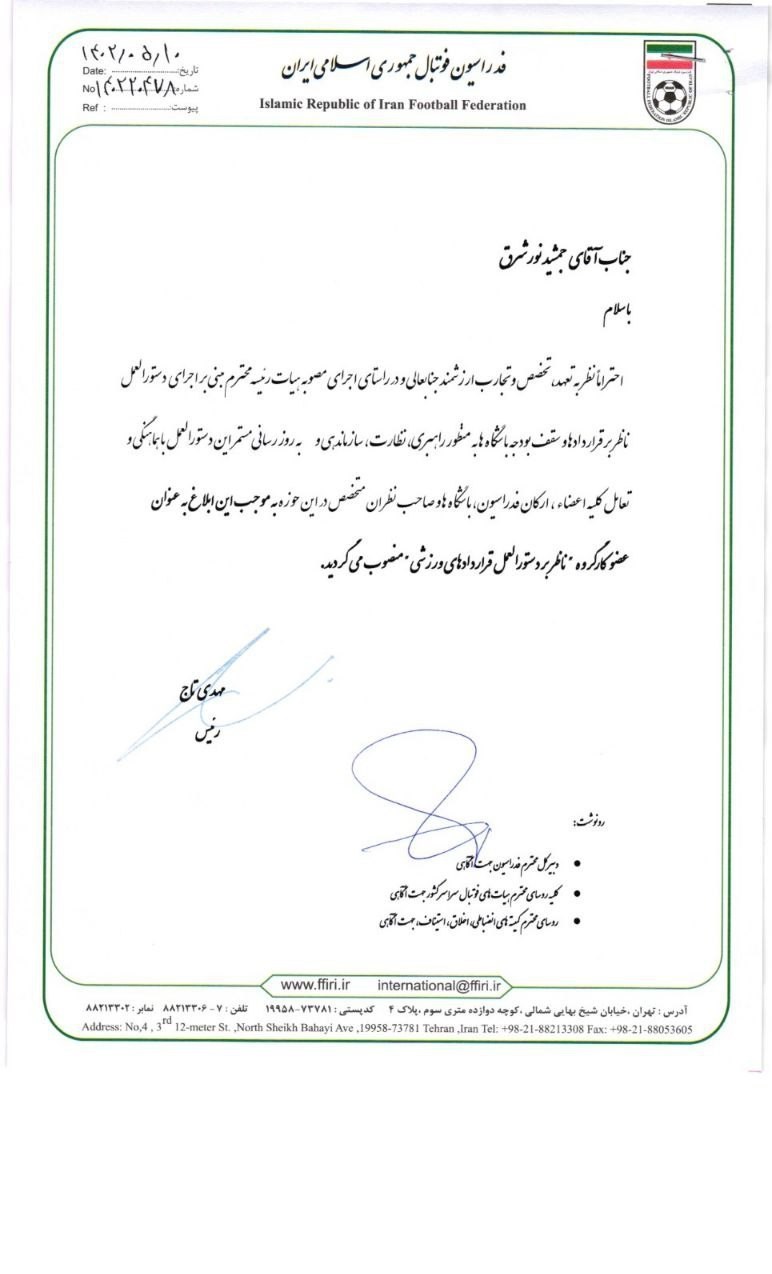 فدراسیون فوتبال جمهوری اسلامی ایران
Islamic Republic of Iran Football Federation
۱۴۰۲/۰۵/۱۰
Date: تاریخ:
No ۱۴۰۲۲۰۴۷۸ شماره
Ref : پیوست:
جناب آقای جمشید نورشرق
باسلام
احتراماً نظر به تعهد، تخصص و تجارب ارزشمند جنابعالی و در راستای اجرای مصوبه هیات رئیسه محترم مبنی بر اجرای دستورالعمل
ناظر بر قراردادها و سقف بودجه باشگاه ها به منظور راهبری، نظارت، سازماندهی و به روز رسانی مستمر این دستورالعمل با هماهنگی و
تعامل کلیه اعضاء ، ارکان فدراسیون، باشگاه ها و صاحب نظران متخصص در این حوزه به موجب این ابلاغ به عنوان
عضو کارگروه "ناظر بر دستورالعمل قراردادهای ورزشی" منصوب می گردید.
مهدی تاج
رئیس
رونوشت:
• دبیرکل محترم فدراسیون جهت آگاهی
• کلیه روسای محترم هیات های فوتبال سراسر کشور جهت آگاهی
• روسای محترم کمیته های انضباطی، اخلاق، استیناف، جهت آگاهی
www.ffiri.ir international@ffiri.ir
آدرس : تهران ،خیابان شیخ بهایی شمالی ،کوچه دوازده متری سوم ،پلاک ۴ کدپستی : ۷۳۷۸۱-۱۹۹۵۸ تلفن : ۷ - ۸۸۲۱۳۳۰۶ نمابر : ۸۸۲۱۳۳۰۲
Address: No,4 , 3rd 12-meter St. ,North Sheikh Bahayi Ave ,19958-73781 Tehran ,Iran Tel: +98-21-88213308 Fax: +98-21-88053605